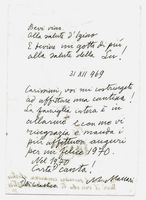 Bevi vino
alla salute d'Igino
E bevine un gotto di più
alla salute della Lu'!
31 XII 969
Carissimi, voi mi costringete
ad affittare una cantina!
La famiglia intera è in
allarme! Icono vi
ringrazia e manda i
più affettuosi auguri
per un felice 1970.
Nel 1970
Carta canta!